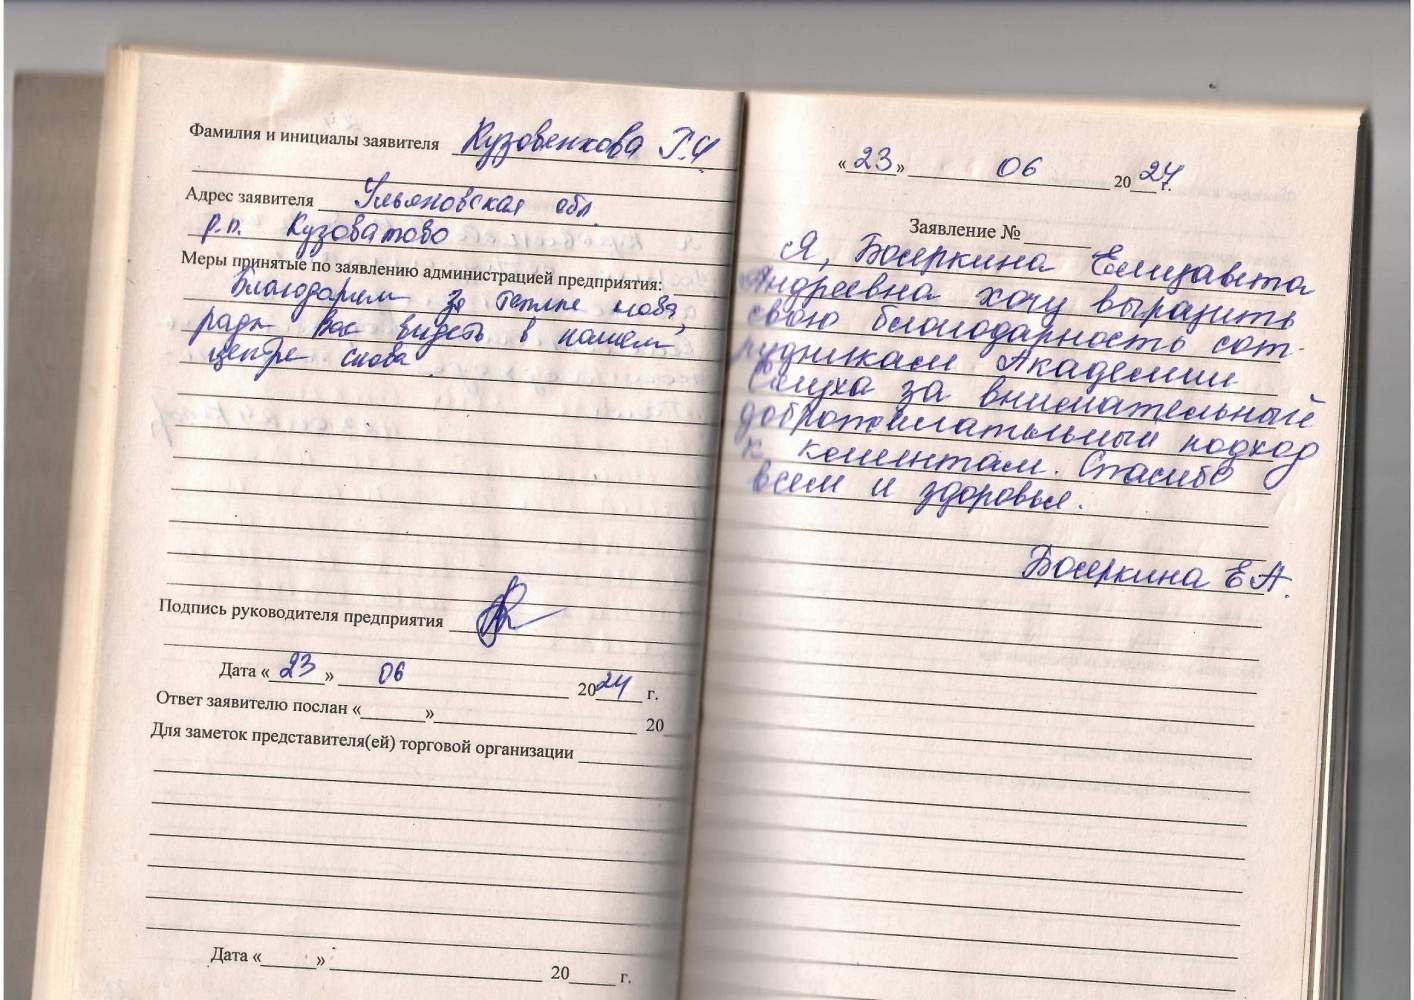 Фамилия и инициалы заявителя Кузовенкова Г.И
Адрес заявителя Ульяновская обл.
р.п. Кузоватово
Меры принятые по заявлению администрацией предприятия:
Благодарим за теплые слова,
рады Вас видеть в нашем
центре слова.
Подпись руководителя предприятия
Дата «23» 06 2024 г.
Ответ заявителю послан «» 20
Для заметок представителя(ей) торговой организации
Дата «» 20 г.
«23» 06 2024 г.
Заявление №
Я, Бояркина Елизавета
Андреевна хочу выразить
свою благодарность сот-
рудникам Академии
Слуха за внимательный
доброжелательный подход
к клиентам. Спасибо
всем и здоровья.
Бояркина Е А.